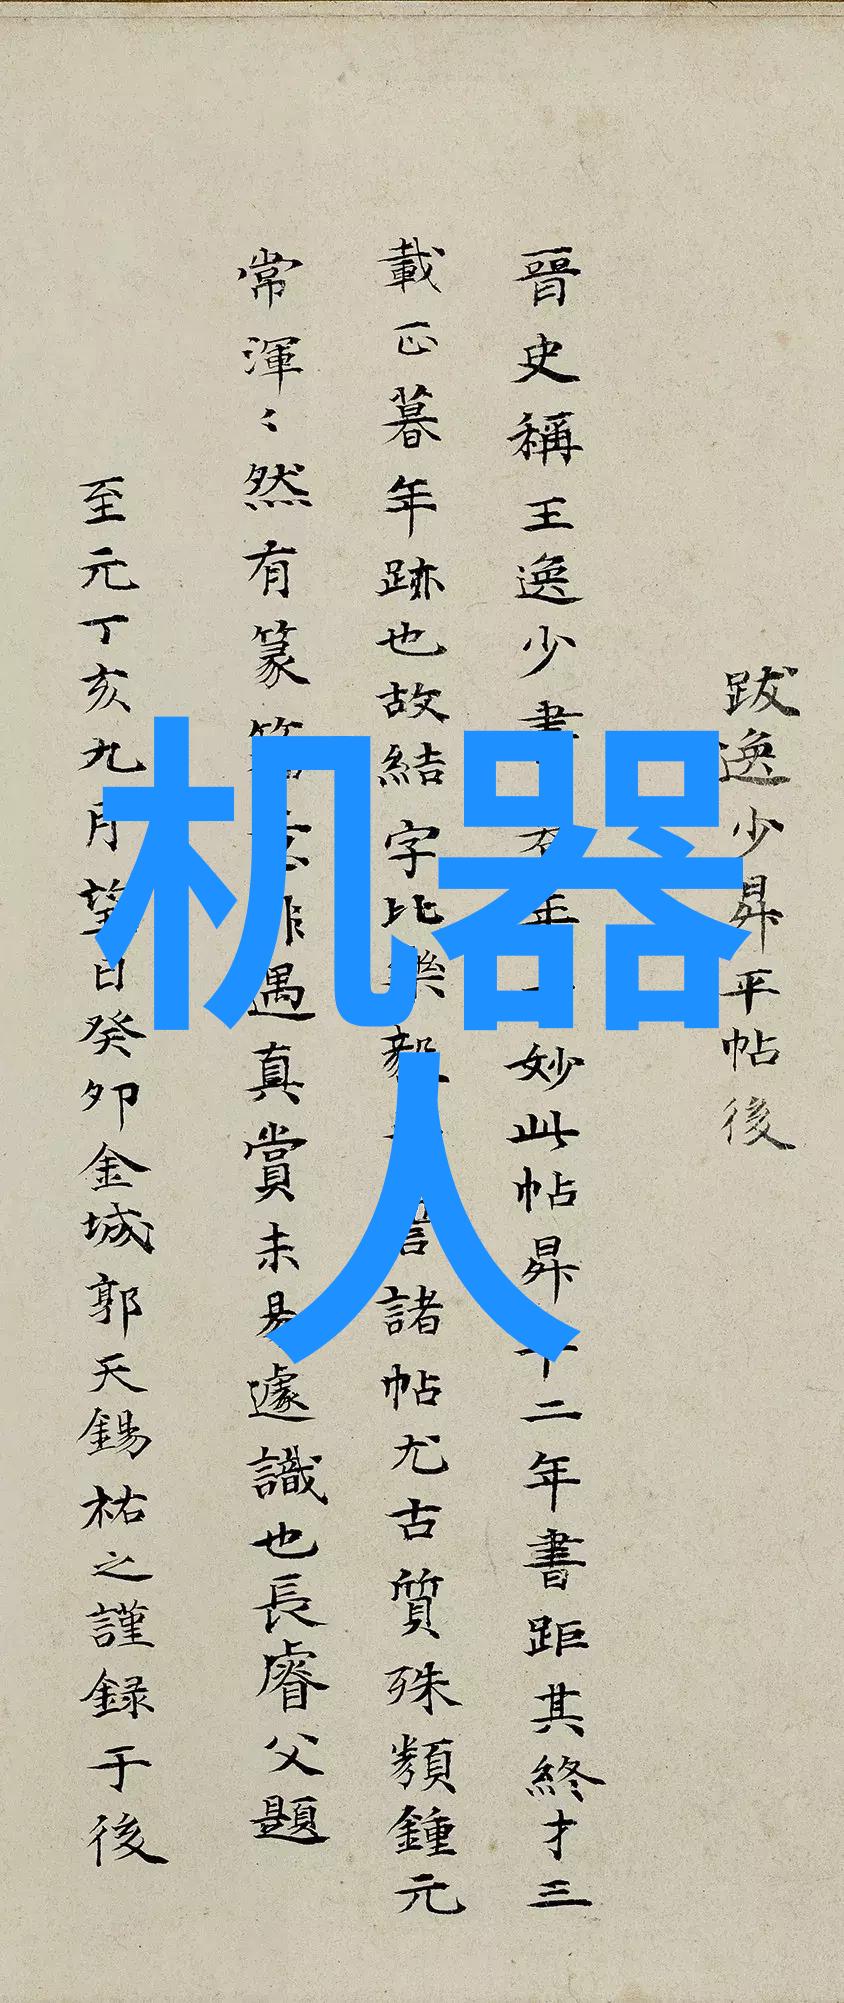 跋逸少昇平帖後
晉史稱王逸少書 妙此帖昇十二年書距其終才三
載正暮年跡也故結字比樂毅 諸帖尤古質殊類鍾元
常渾〻然有篆 遇真賞未易遽識也長睿父題
至元丁亥九月望日癸卯金城郭天錫祐之謹録于後
机器
人